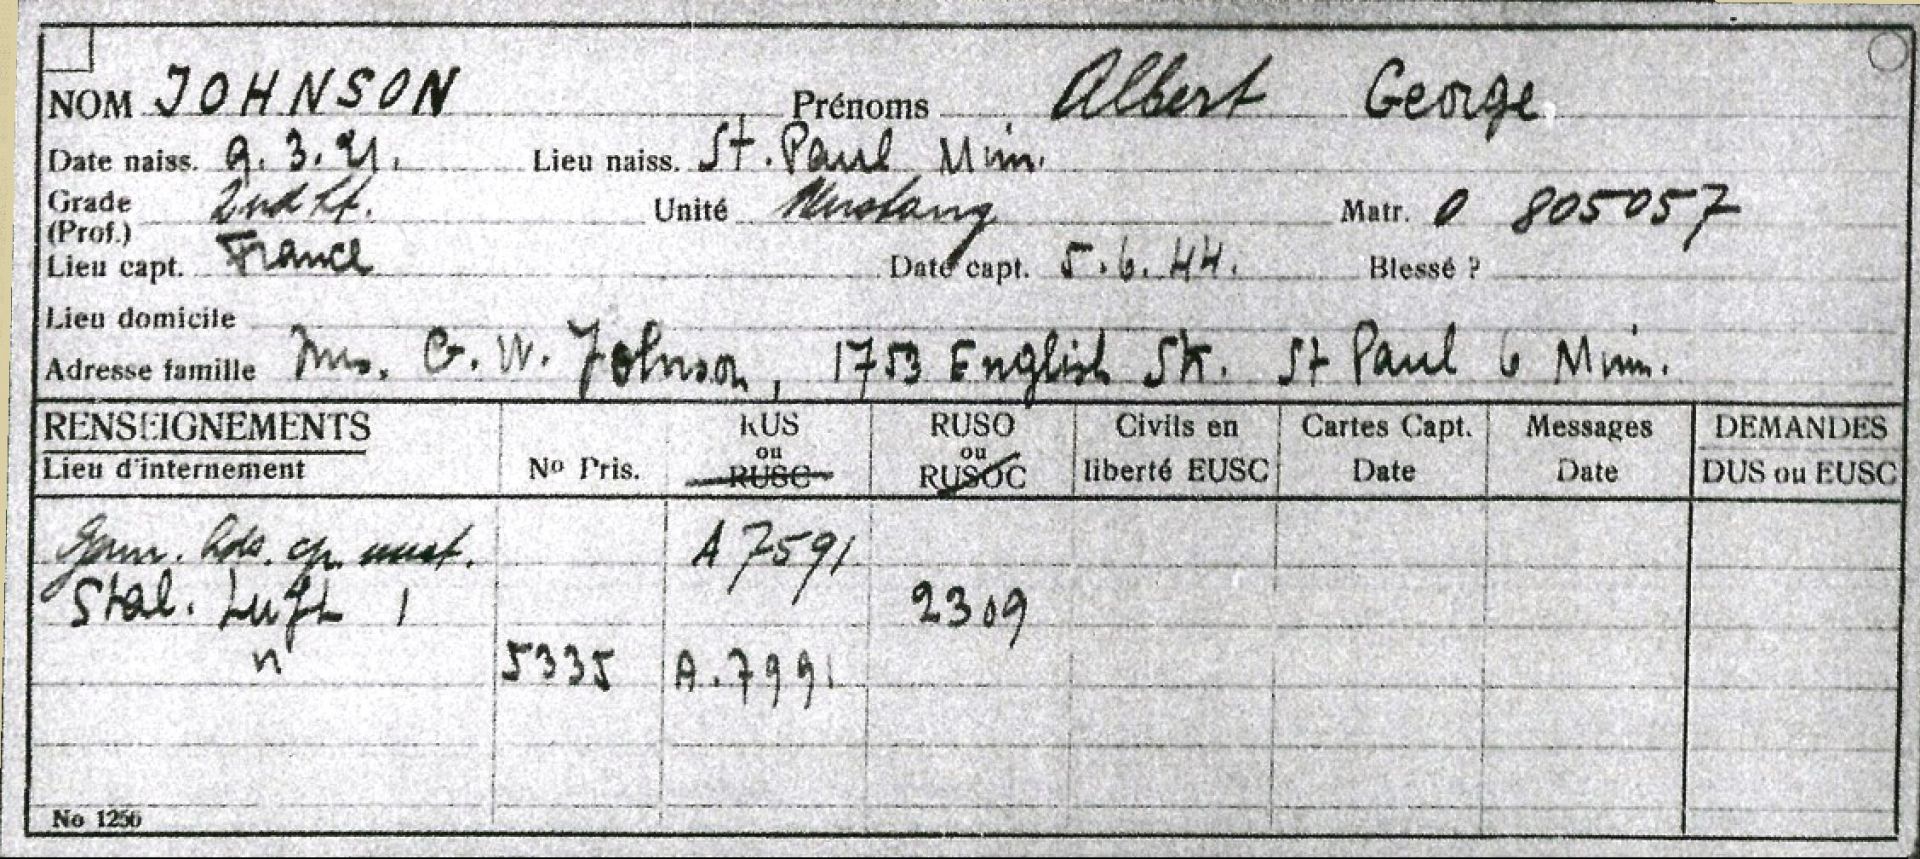 NOM JOHNSON Prénoms Albert George
Date naiss. 9.3.21. Lieu naiss. St. Paul Minn.
Grade (Prof.) 2nd Lt. Unité Mustang Matr. O 805057
Lieu capt. France Date capt. 5.6.44. Blessé ?
Lieu domicile
Adresse famille Mrs. G. W. Johnson, 1753 English St. St Paul 6 Minn.
RENSEIGNEMENTS RUS RUSO Civils en Cartes Capt. Messages DEMANDES
ou ou
Lieu d'internement No Pris. RUSC RUSOC liberté EUSC Date Date DUS ou EUSC
A 7591
Stal. Luft 1 2309
" 5335 A.7991
No 1256